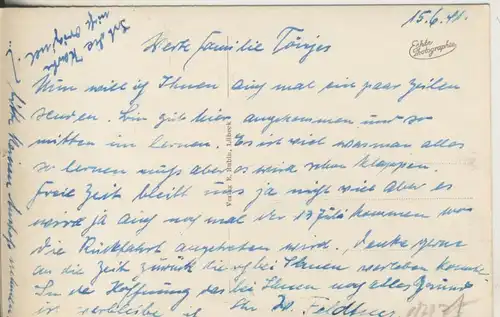 15.6.41.
Ist die Karte
nicht originel.
Echte
Photographie
Werte Familie Tönjes
Nun will ich Ihnen auch mal ein paar Zeilen
senden. Bin gut hier angekommen und so
mitten im lernen. Es ist viel was man alles
so lernen muß aber es wird schon klappen.
Freie Zeit bleibt uns ja nicht viel aber es
wird ja auch noch mal der 13 Juli kommen wo
die Rückfahrt angetreten wird. Denke gerne
an die Zeit zurück die ich bei Ihnen verleben konnte.
In der Hoffnung das bei Ihnen noch alles Gesund
ist verbleibe ich Ihr
Verlag E. Lübeck
Bitte keinen Anstoß nehmen